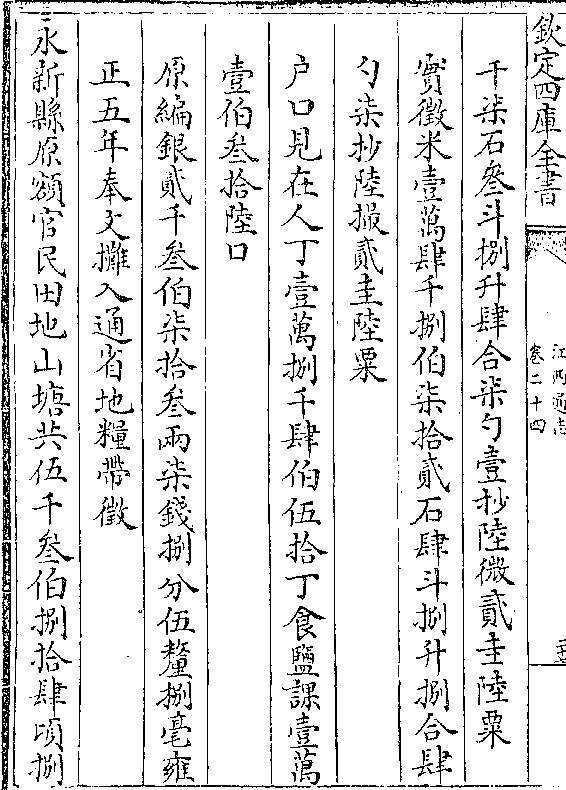 欽定四庫全書
江西通志
卷二十四
千柒石叁斗捌升肆合柒勺壹抄陸微貳圭陸粟
實徵米壹萬肆千捌伯柒拾貳石肆斗捌升捌合肆
勺柒抄陸撮貳圭陸粟
户口見在人丁壹萬捌千肆伯伍拾丁食鹽課壹萬
壹伯叁拾陸口
原編銀貳千叁伯柒拾叁兩柒錢捌分伍釐捌毫雍
正五年奉文攤入通省地糧帶徵
永新縣原額官民田地山塘共伍千叁伯捌拾肆頃捌